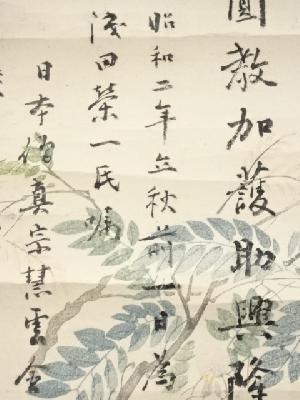 圓教加護助興隆
昭和二年立秋前一日為
淺田榮一氏嘱
日本僧真宗慧雲金